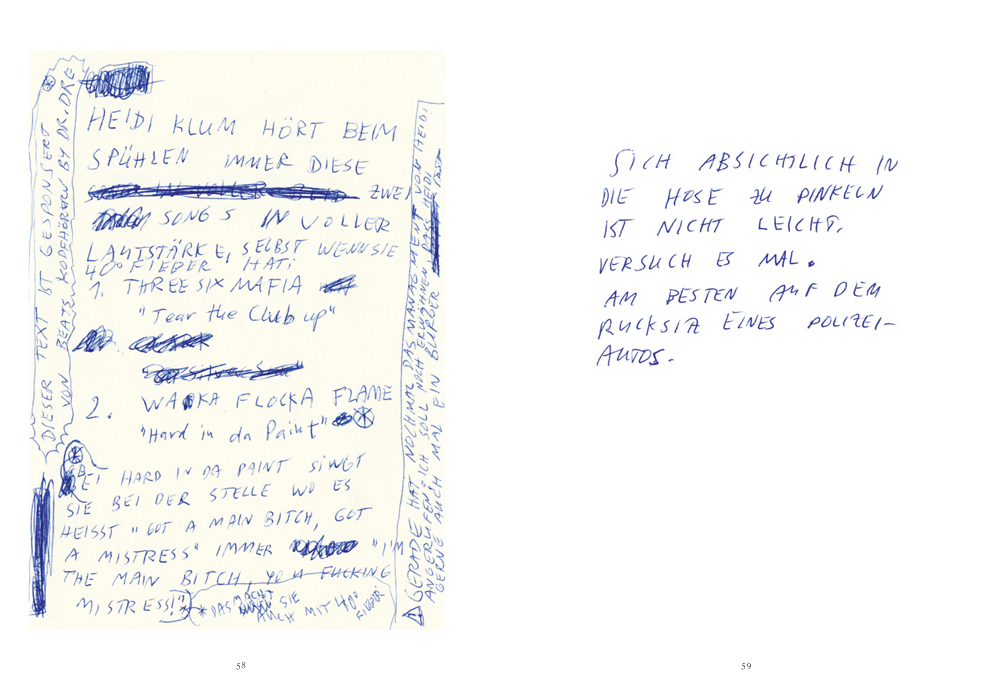 DIESER TEXT IST GESPONSERT
VON BEATS KOPFHÖRERN BY DR. DRE
HEIDI KLUM HÖRT BEIM
SPÜHLEN IMMER DIESE
ZWEI
SONGS IN VOLLER
LAUTSTÄRKE, SELBST WENN SIE
40° FIEBER HAT:
1. THREE SIX MAFIA
"Tear the Club up"
2. WAKA FLOCKA FLAME
"Hard in da Paint" *
* BEI HARD IN DA PAINT SINGT
SIE BEI DER STELLE WO ES
HEISST "GOT A MAIN BITCH, GOT
A MISTRESS" IMMER "I'M
THE MAIN BITCH, YOU FUCKING
MISTRESS!"*
* DAS MACHT
SIE
AUCH MIT 40°
FIEBER!
GERADE HAT NOCHMAL DAS MANAGMENT VON HEIDI
ANGERUFEN, ICH SOLL NOCH ERWÄHNEN, DASS HEIDI
GERNE AUCH MAL EIN BURGER ISST
58
SICH ABSICHTLICH IN
DIE HOSE ZU PINKELN
IST NICHT LEICHT.
VERSUCH ES MAL.
AM BESTEN AUF DEM
RÜCKSITZ EINES POLIZEI-
AUTOS.
59